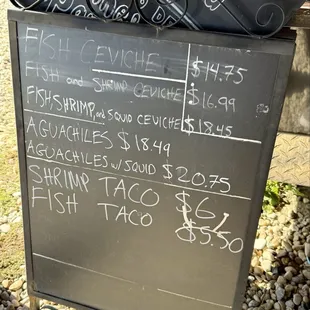 FISH CEVICHE $14.75
FISH and SHRIMP CEVICHE $16.99
FISH, SHRIMP, and SQUID CEVICHE $18.45
AGUACHILES $18.49
AGUACHILES w/ SQUID $20.75
SHRIMP TACO $6
FISH TACO $5.50